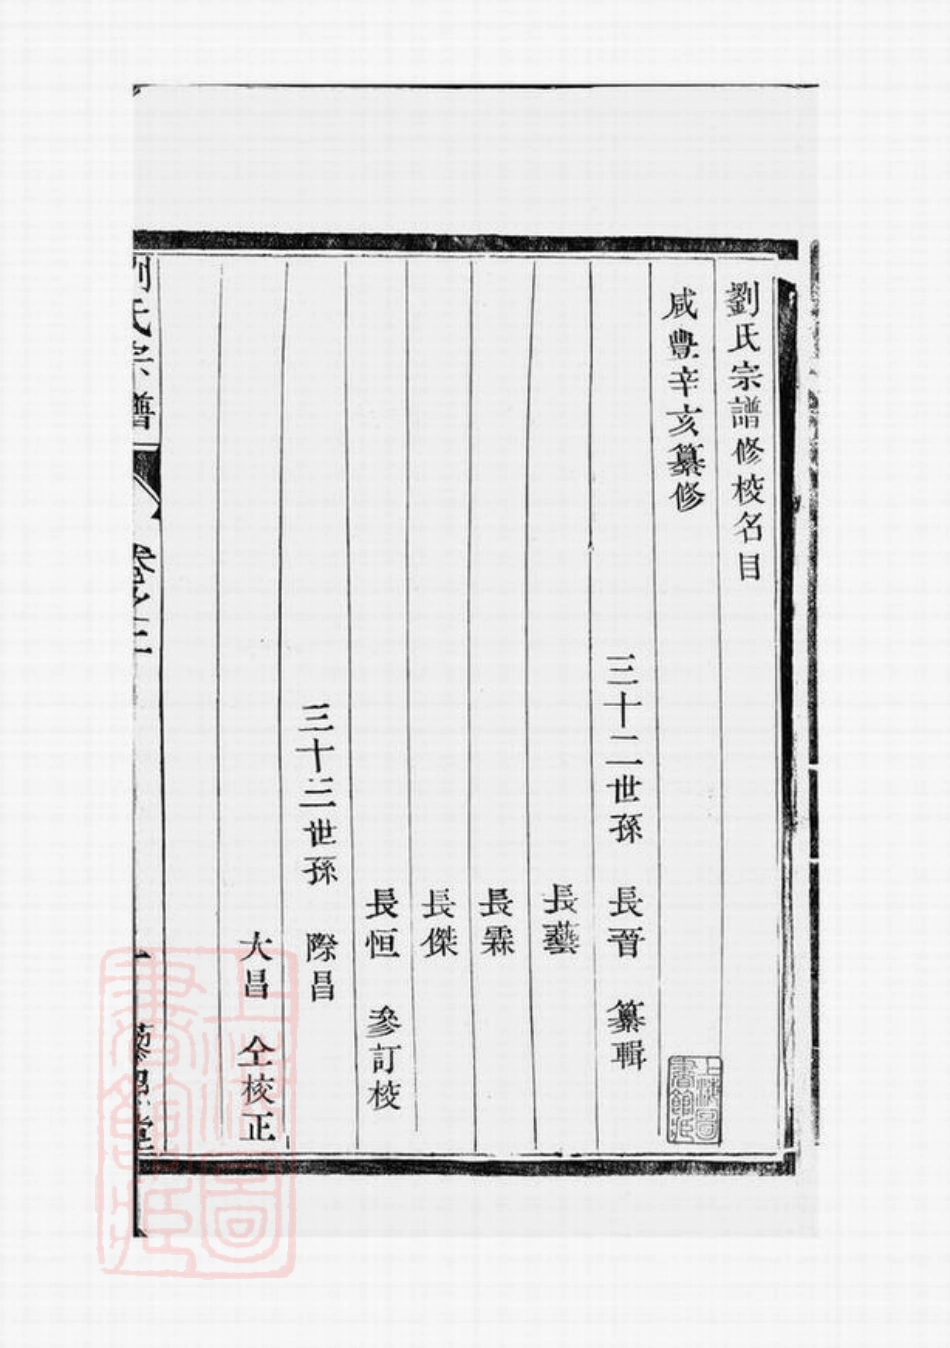 劉氏宗譜修校名目
咸豐辛亥纂修
三十二世孫 長晉 纂輯
長藝
長霖
長傑
長恒 參訂校
三十三世孫 際昌
大昌 仝校正
劉氏宗譜 卷之
藜照堂
上海圖書館藏
上海圖書館藏